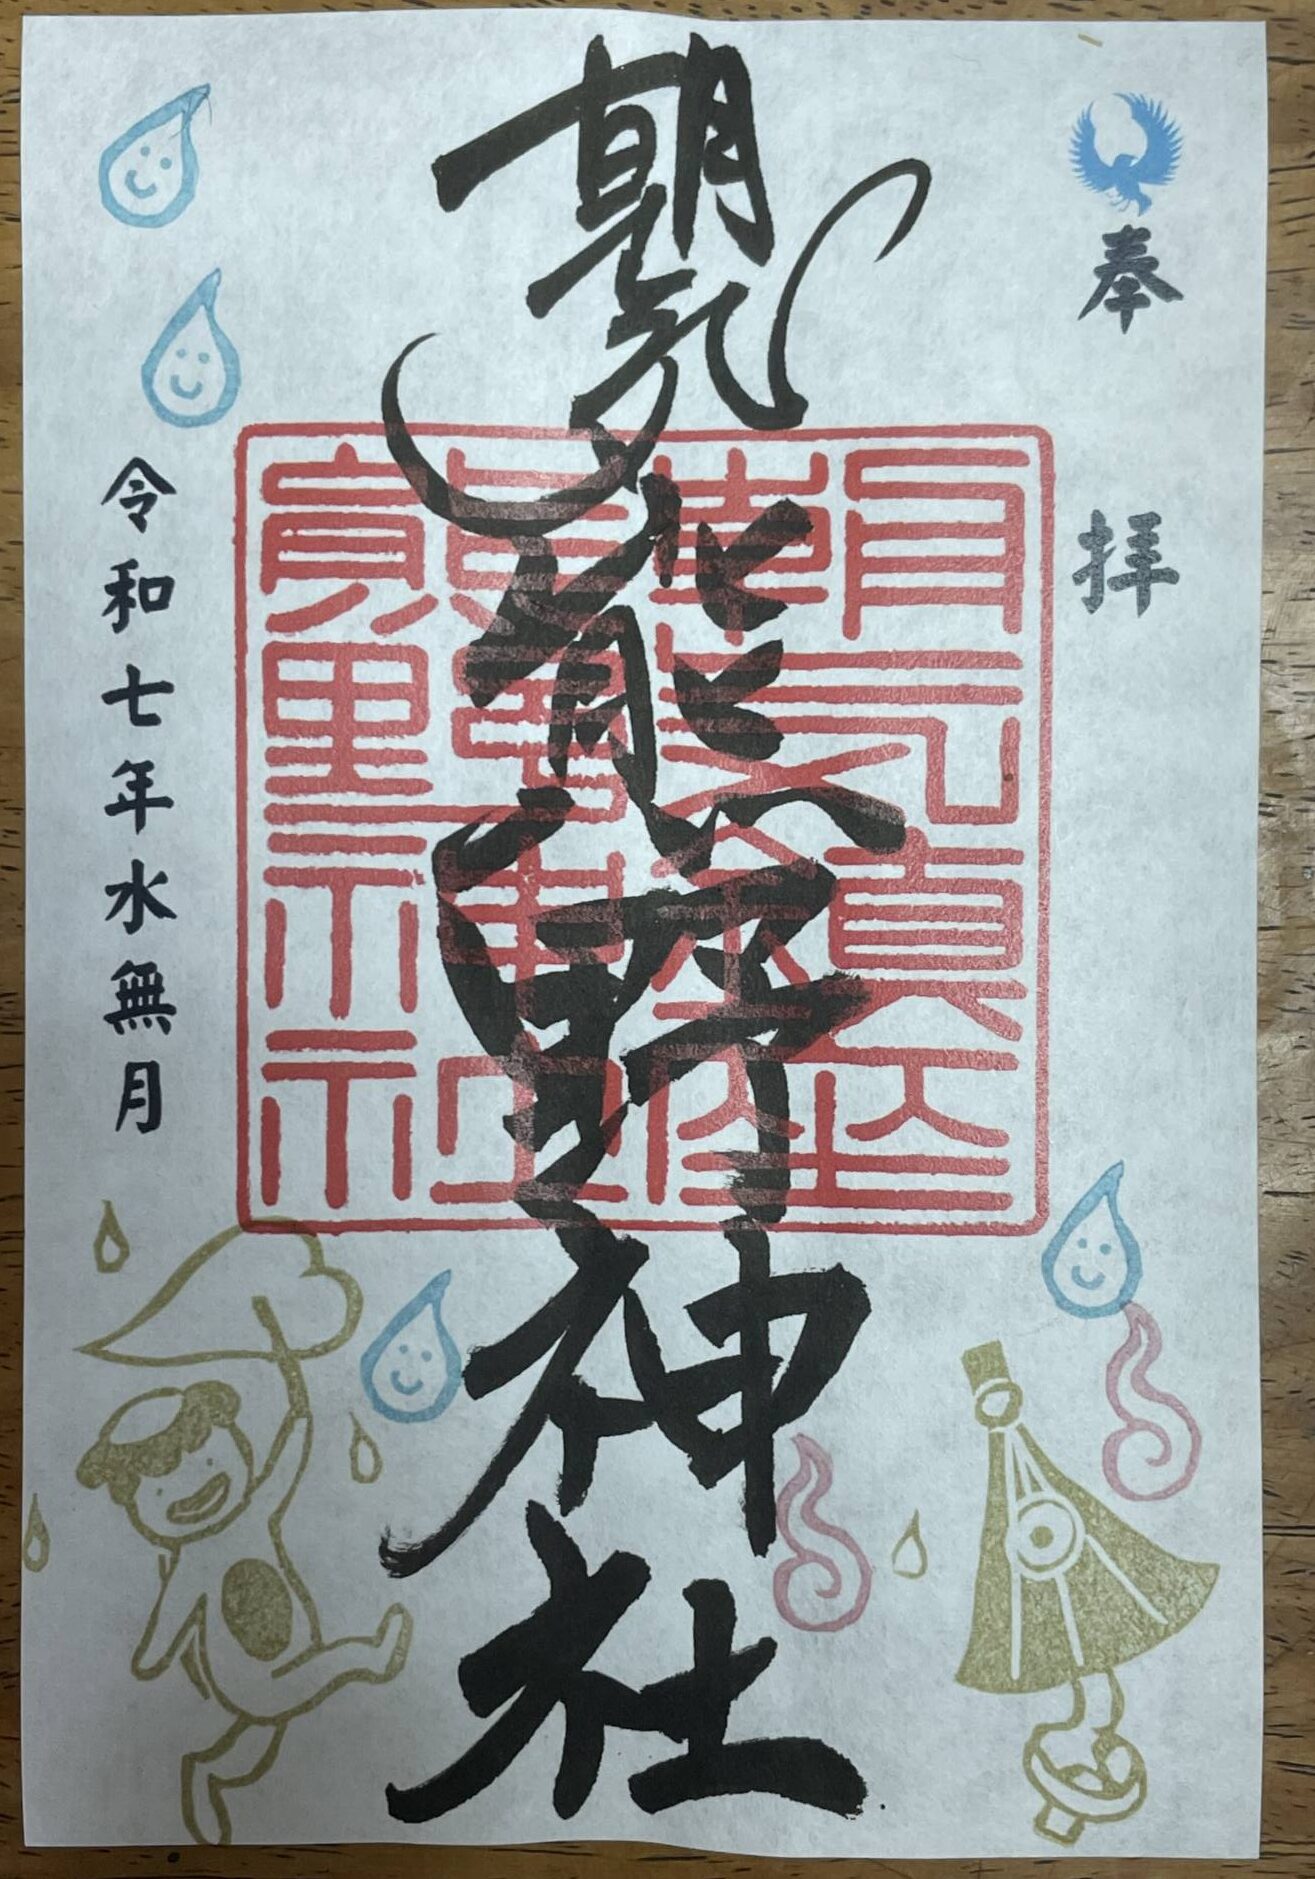 奉拝
朝気熊野神社
令和七年水無月